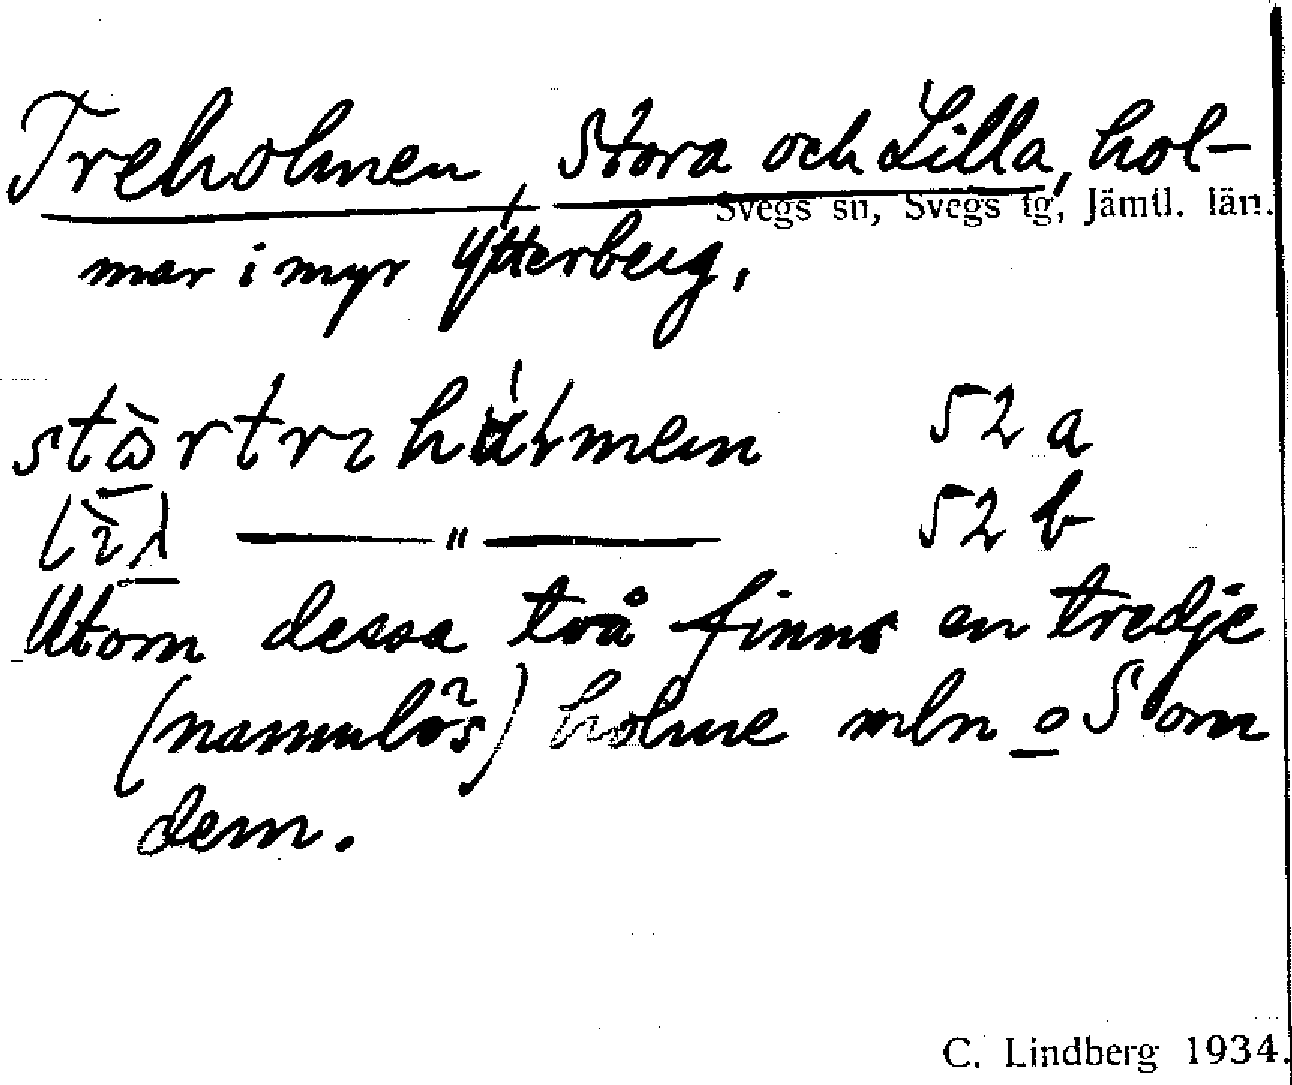 Treholmen, Stora och Lilla, hol-
Svegs sn, Svegs tg, Jämtl. län.
mar i myr Ytterberg.
52 a
lìl —— " —— 52 b
Utom dessa två finns en tredje
(namnlös) holme mln o S om
dem.
C. Lindberg 1934.